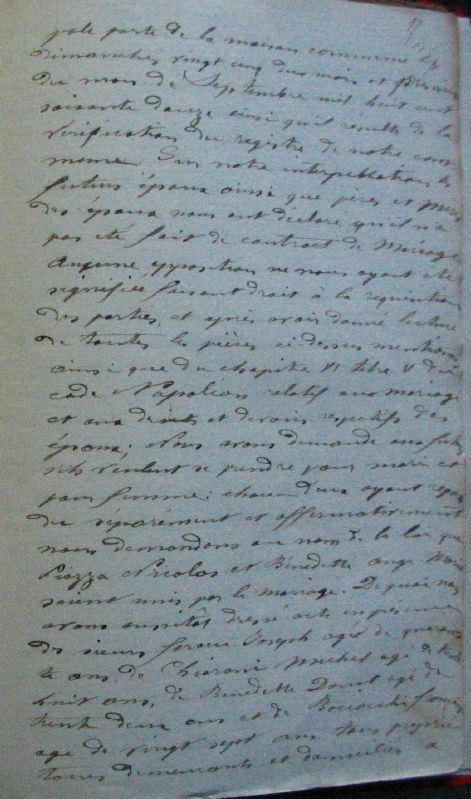 pale porte de la maison commune les
dimanches vingt cinq du mois et premier
du mois de Septembre mil huit cent
soixante douze ainsi qu'il résulte de la
vérification du registre de notre com
mune. Sur notre interpellation les
futurs époux ainsi que pères et mères
des époux nous ont déclaré qu'il n'a
pas été fait de contract de Mariage
Aucune opposition ne nous ayant été
signifiée, faisant droit à la réquisition
des parties, et après avoir donné lecture
de toutes les pièces ci dessus mentionnées
ainsi que du chapitre VI titre V du
code Napoleon relatif au mariage
et aux droits et devoirs respectifs des
époux; Nous avons demandé aux futurs
s'ils veulent se prendre pour mari et
pour femme; chacun d'eux ayant répon
du séparément et affirmativement
nous demandons au nom de la loi que
Piazza Nicolas et Bénédette Ange Marie
soient unis par le mariage. De quoi nous
avons aussitôt dressé acte en présence
des sieurs Joseph agé de quaran
te ans de Michel agé de
huit ans, de Bénédette agé de
trente deux ans et de
agé de vingt sept ans tous proprié
taires demeurants et domiciliés a